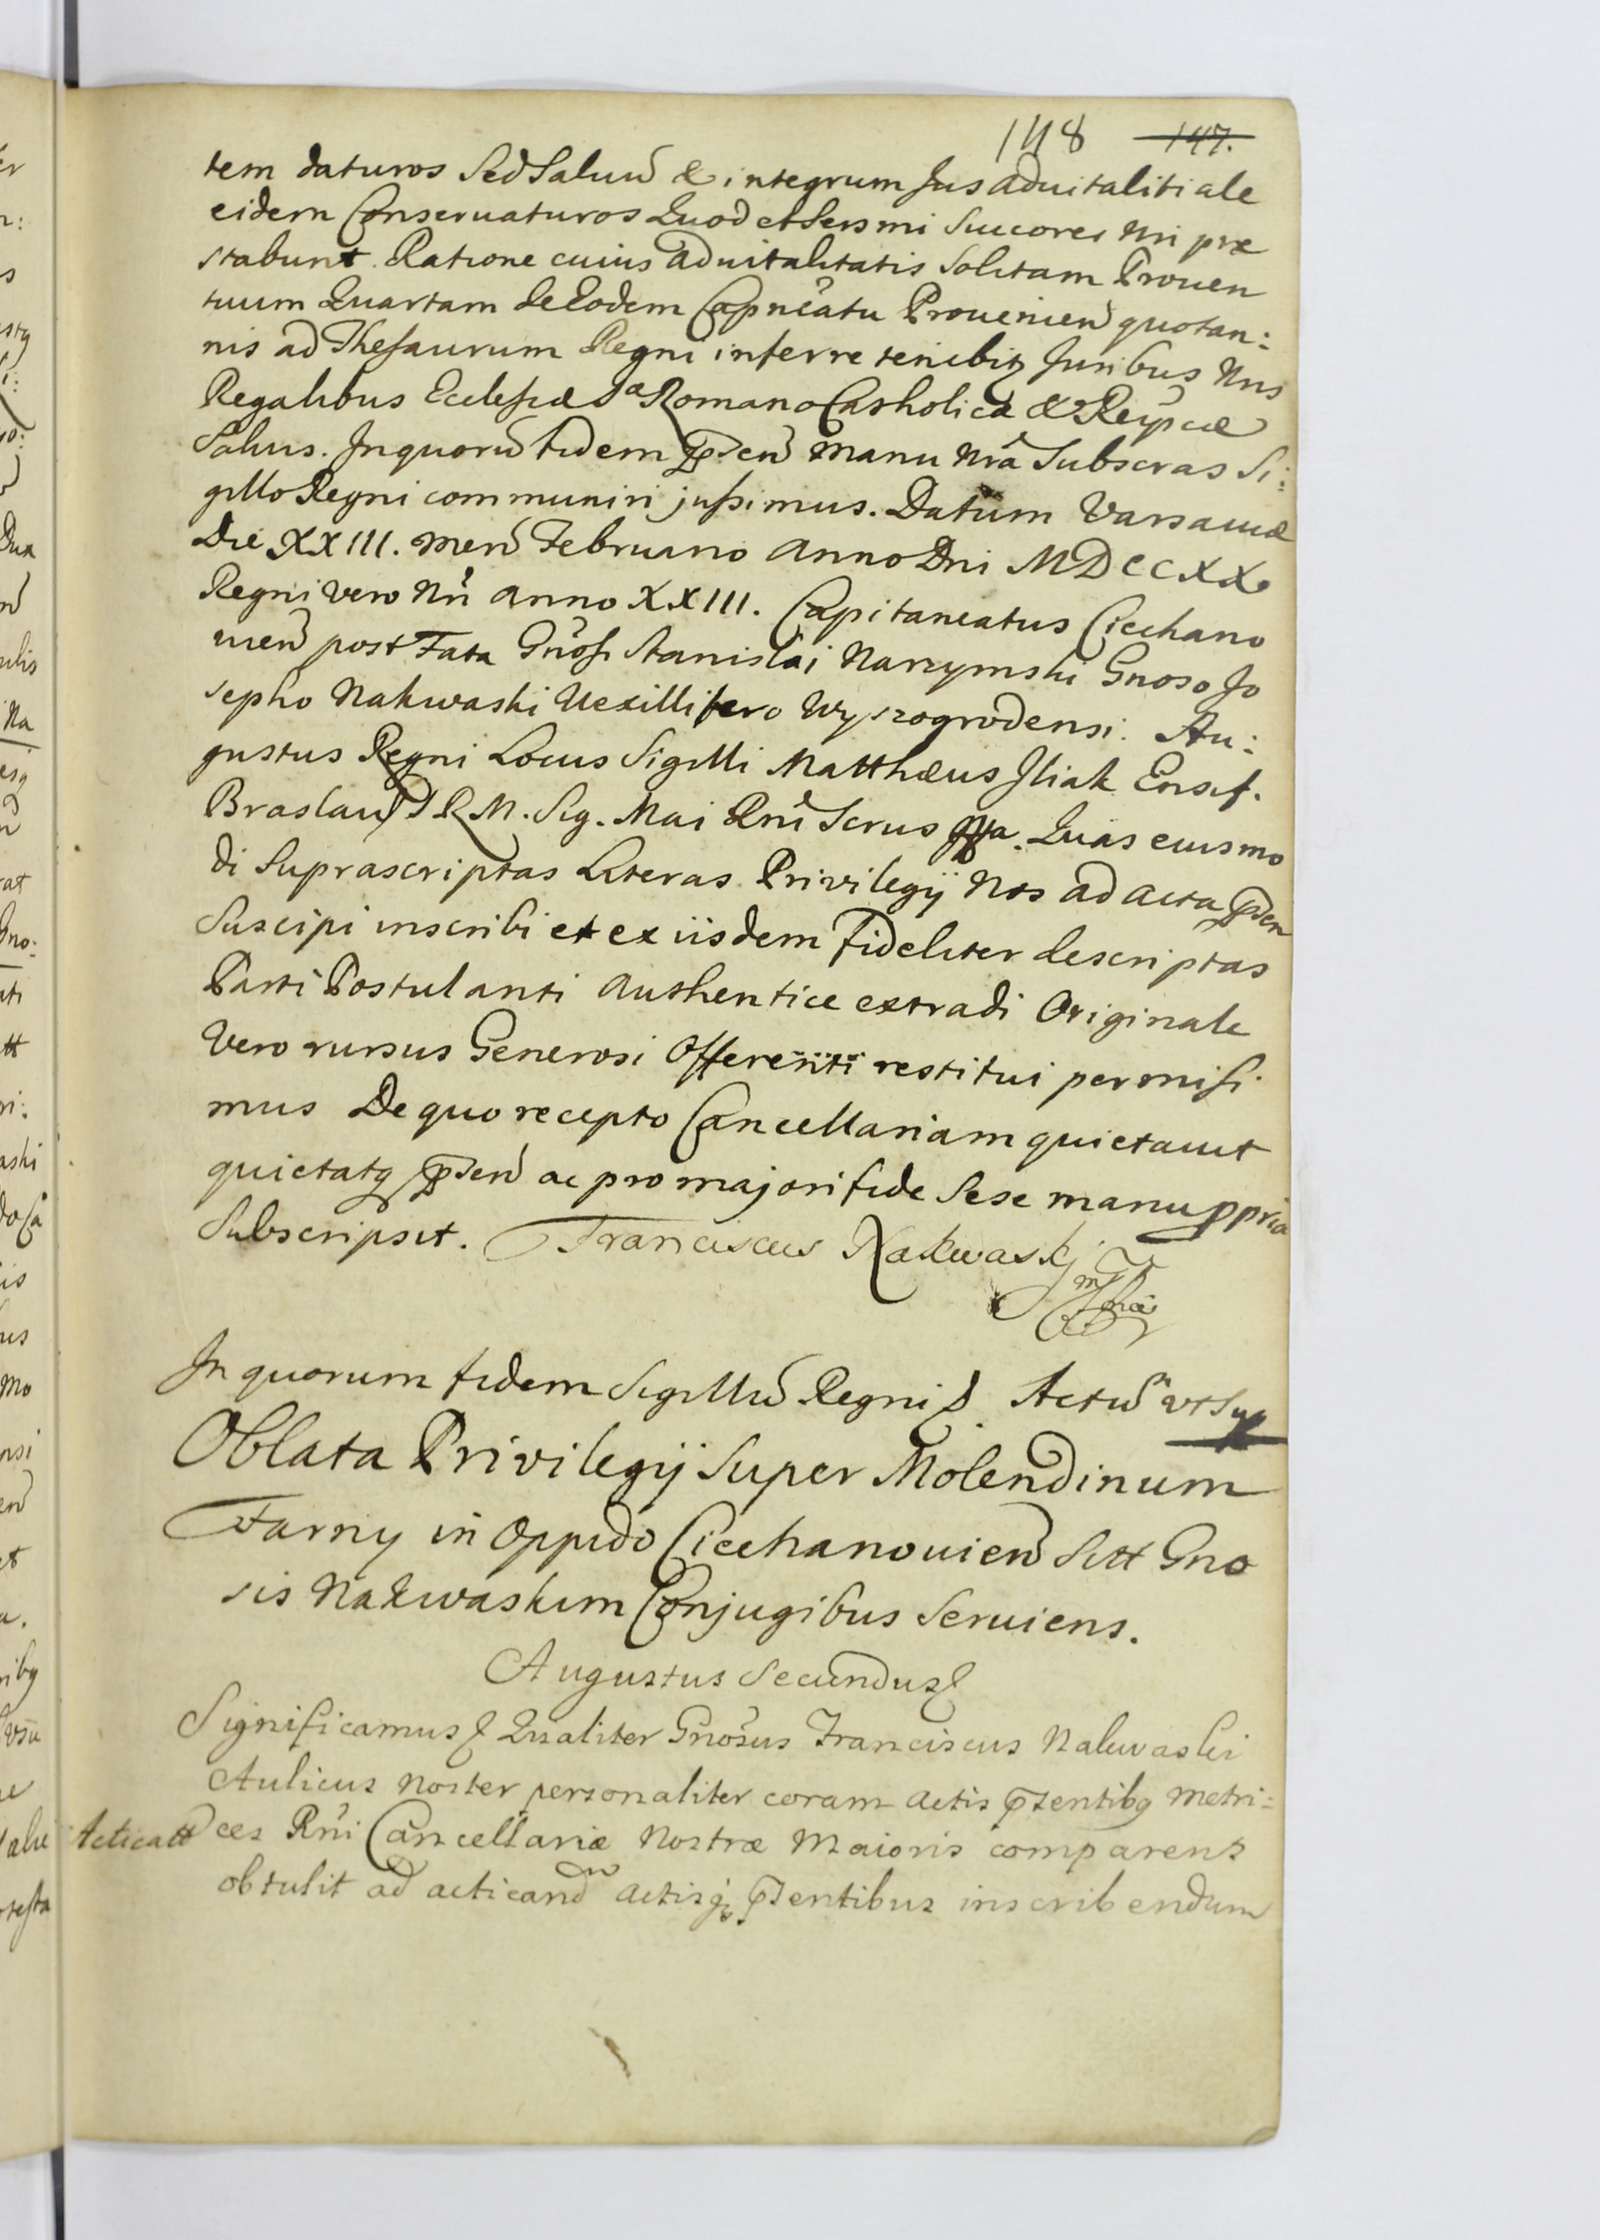 148 147.
tem daturos Sed Saluū & integrum Jus aduitalitiale
eidem Conseruaturos Quod et Sersmi Succores Nri præ
stabunt. Ratione cuius aduitalitatis Solitam Prouen
tuum Quartam de Eodem Capnēatu Prouenien quotan:
nis ad Thesaurum Regni inferre tenebitq Juribus Nris
Regalibus Ecclesiæ Sa Romano Catholicæ & Reipcæ
Saluis. In quorū fidem pñsen manu Nrā Subscras Si:
gillo Regni communiri jussimus. Datum Varsauiæ
Die XXIII. men Februario Anno Dni MDCCXX.
Regni vero Nri anno XXIII. Capitaneatus Ciechano
uien post Fata Gnosi Stanislai Narzymski Gnoso Jo
sepho Nakwaski Vexillifero Wyszogrodensi. Au:
gustus Regni Locus Sigilli Matthæus Iliak Ensif.
Braslau S R M. Sig. Mai Rni Scrus mpa. Quas eiusmo
di Suprascriptas Literas Privilegij Nos ad acta pñsen
Suscipi inscribi et ex iisdem fideliter descriptas
Parti Postulanti Authentice extradi Originale
Vero rursus Generosi Offerenti restitui permisi
mus De quo recepto Cancellariam quietauit
quietatq pñsen ac pro majori fide Sese manu ppria
Subscripsit. Franciscus Nakwaskj
mppria
In quorum fidem Sigillū Regni &. Actū ut Supr
Oblata Privilegij Super Molendinum
Farny in Oppido Ciechanouien Sitt Gno
sis Nakwaskim Conjugibus Seruiens.
Augustus Secundus &
Significamus & Qualiter Gnosus Franciscus Nakwaski
Aulicus Noster personaliter coram Actis pñsentibq Metri=
Acticatt ces Rni Cancellariæ Nostræ Maioris comparens
obtulit ad acticand Actisq pñsentibus inscribendum